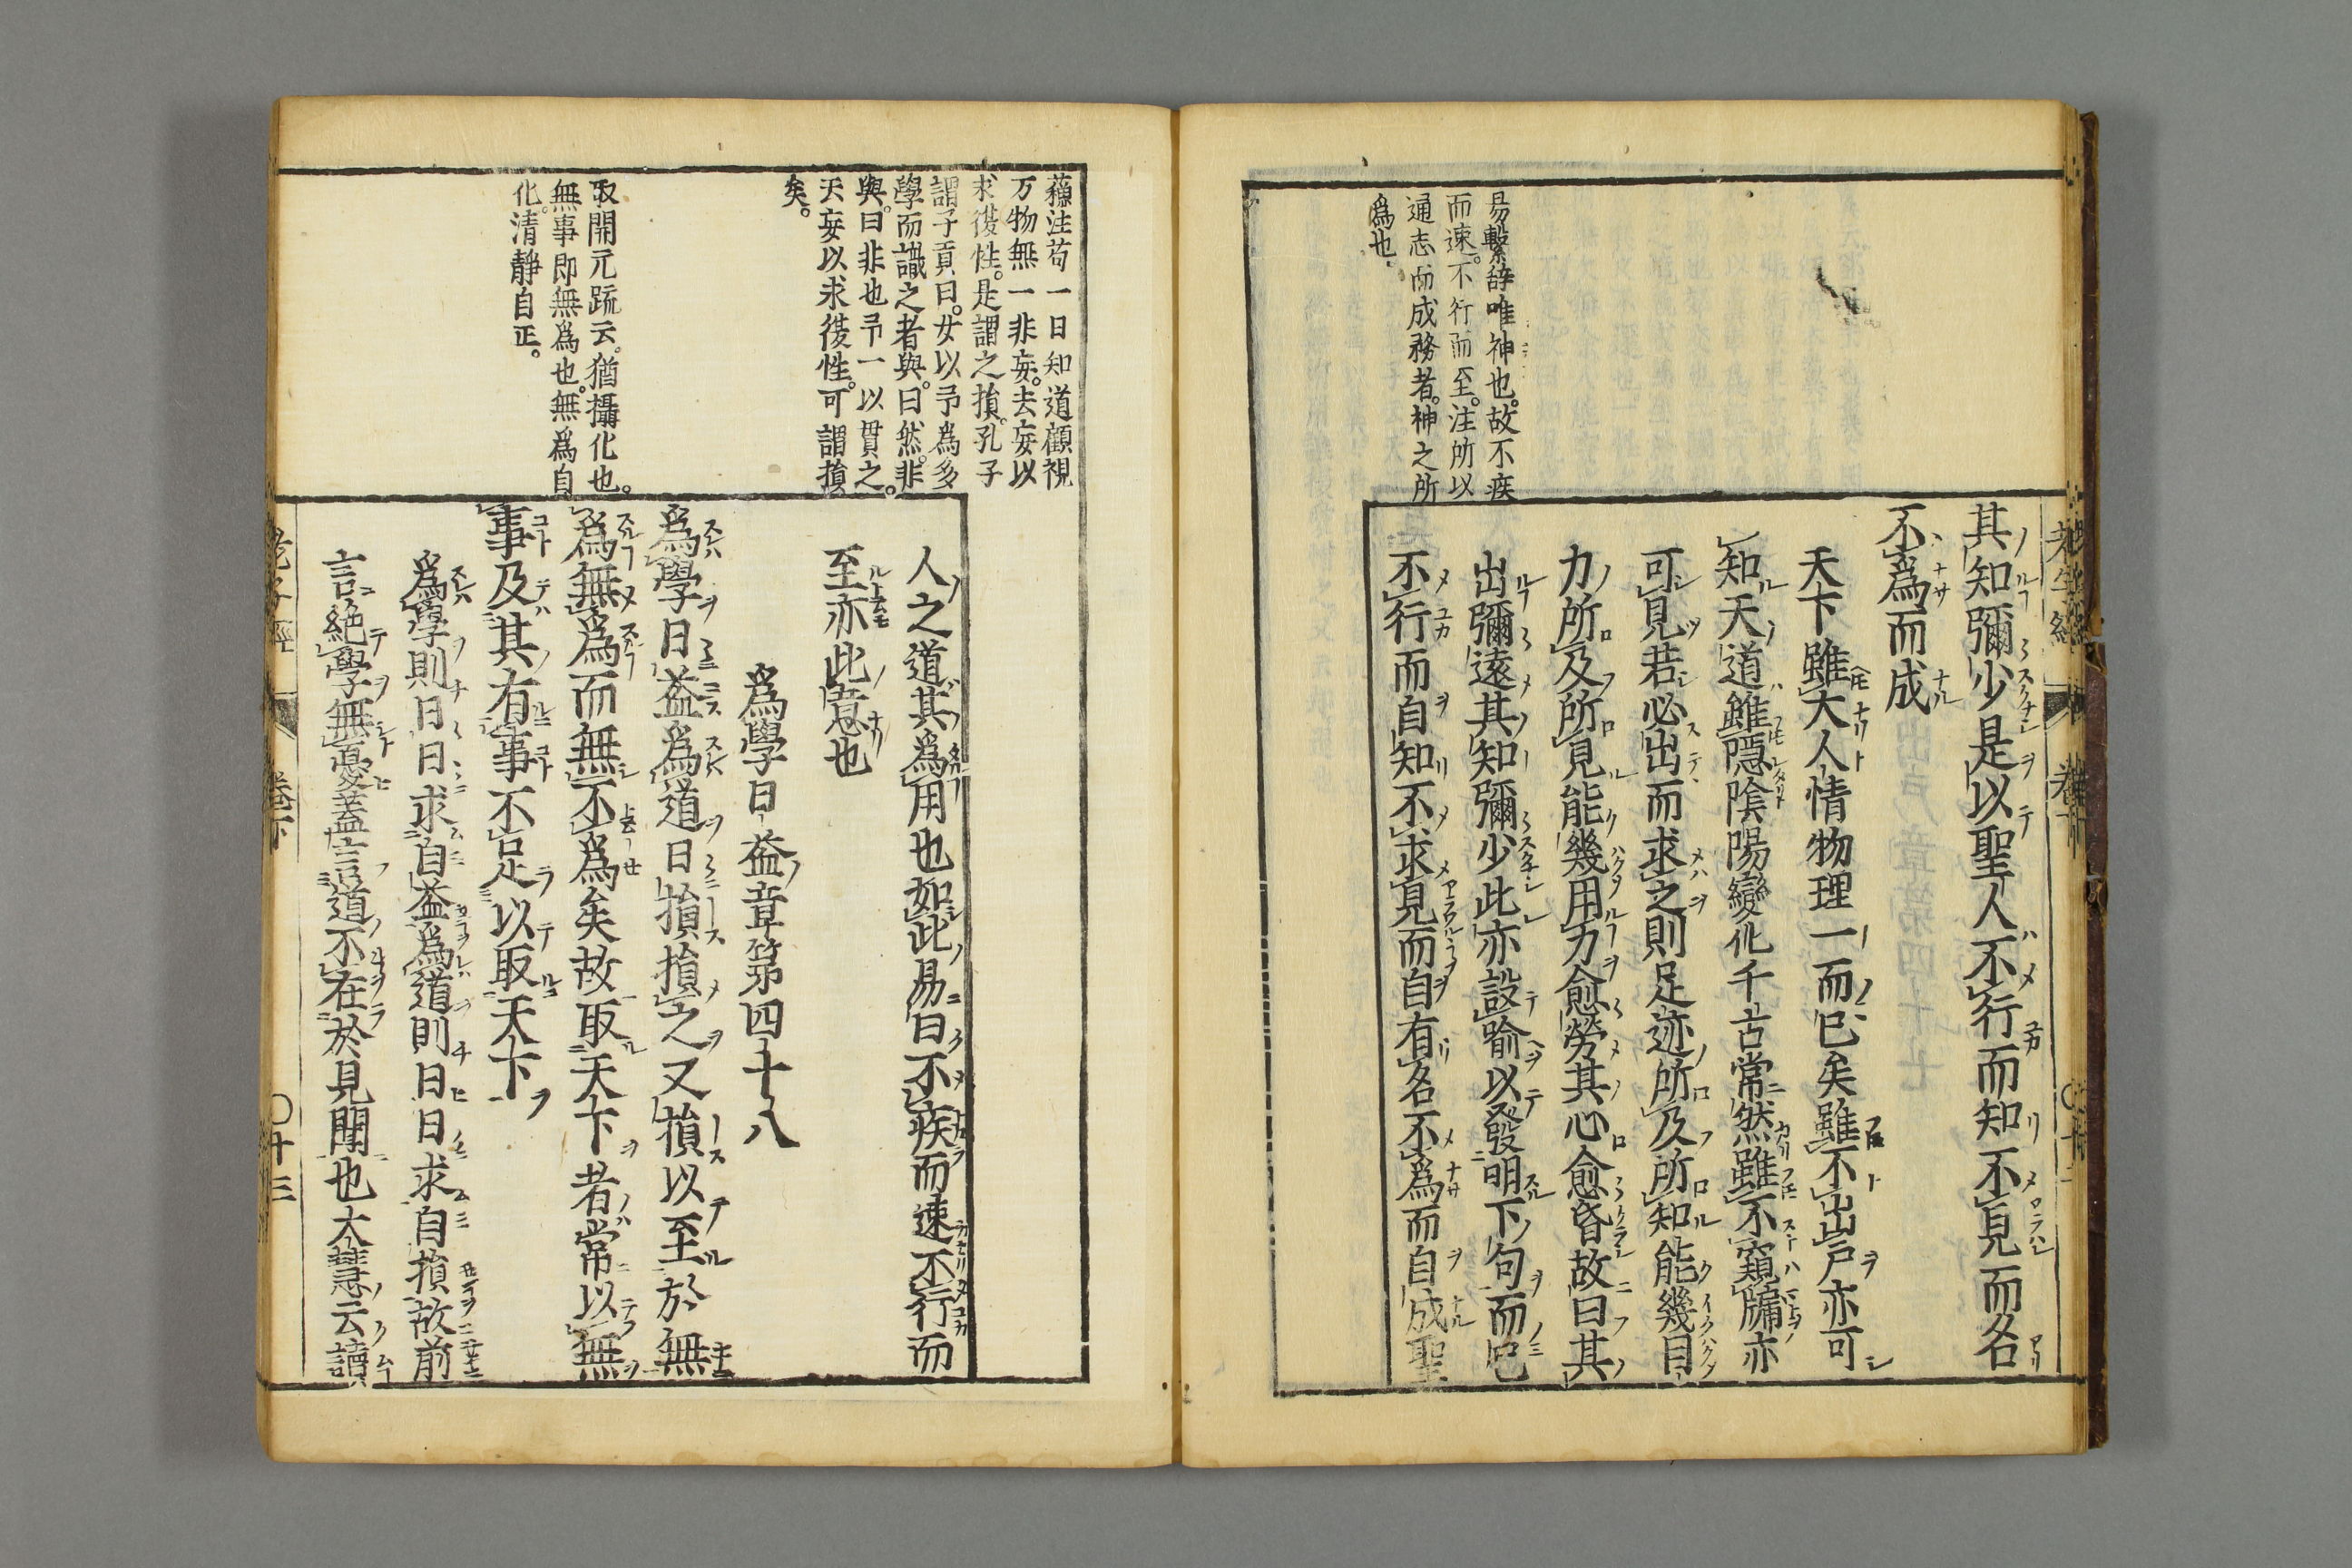 易繫辞唯神也。故不疾
而速。不行而至。注所以
通志而成務者。神之所
爲也。
其知彌少是以聖人不行而知不見而名
不爲而成
天下雖大人情物理一而已矣雖不出戸亦可
知天道雖隱陰陽變化千古常然雖不窺牖亦
可見若必出而求之則足迹所及所知能幾目
力所及所見能幾用力愈勞其心愈昏故曰其
出彌遠其知彌少此亦設喻以發明下句而已
不行而自知不求見而自有名不爲而自成聖
蘇注苟一日知道顧視
万物無一非妄。去妄以
求復性。是謂之損。孔子
謂子貢曰。女以予為多
學而識之者與。曰然。非
與。曰非也予一以貫之。
夫妄以求復性。可謂損
矣。
取開元疏云。猶攝化也。
無事即無爲也。無爲自
化。清靜自正。
人之道其爲用也如此易曰不疾而速不行而
至亦此意也
爲學日益章第四十八
爲學日益爲道日損損之又損以至於無
爲無爲而無不爲矣故取天下者常以無
事及其有事不足以取天下
爲學則日日求自益爲道則日日求自損故前
言絶學無憂蓋言道不在於見聞也大慧云讀
老子經 卷下 〇十三